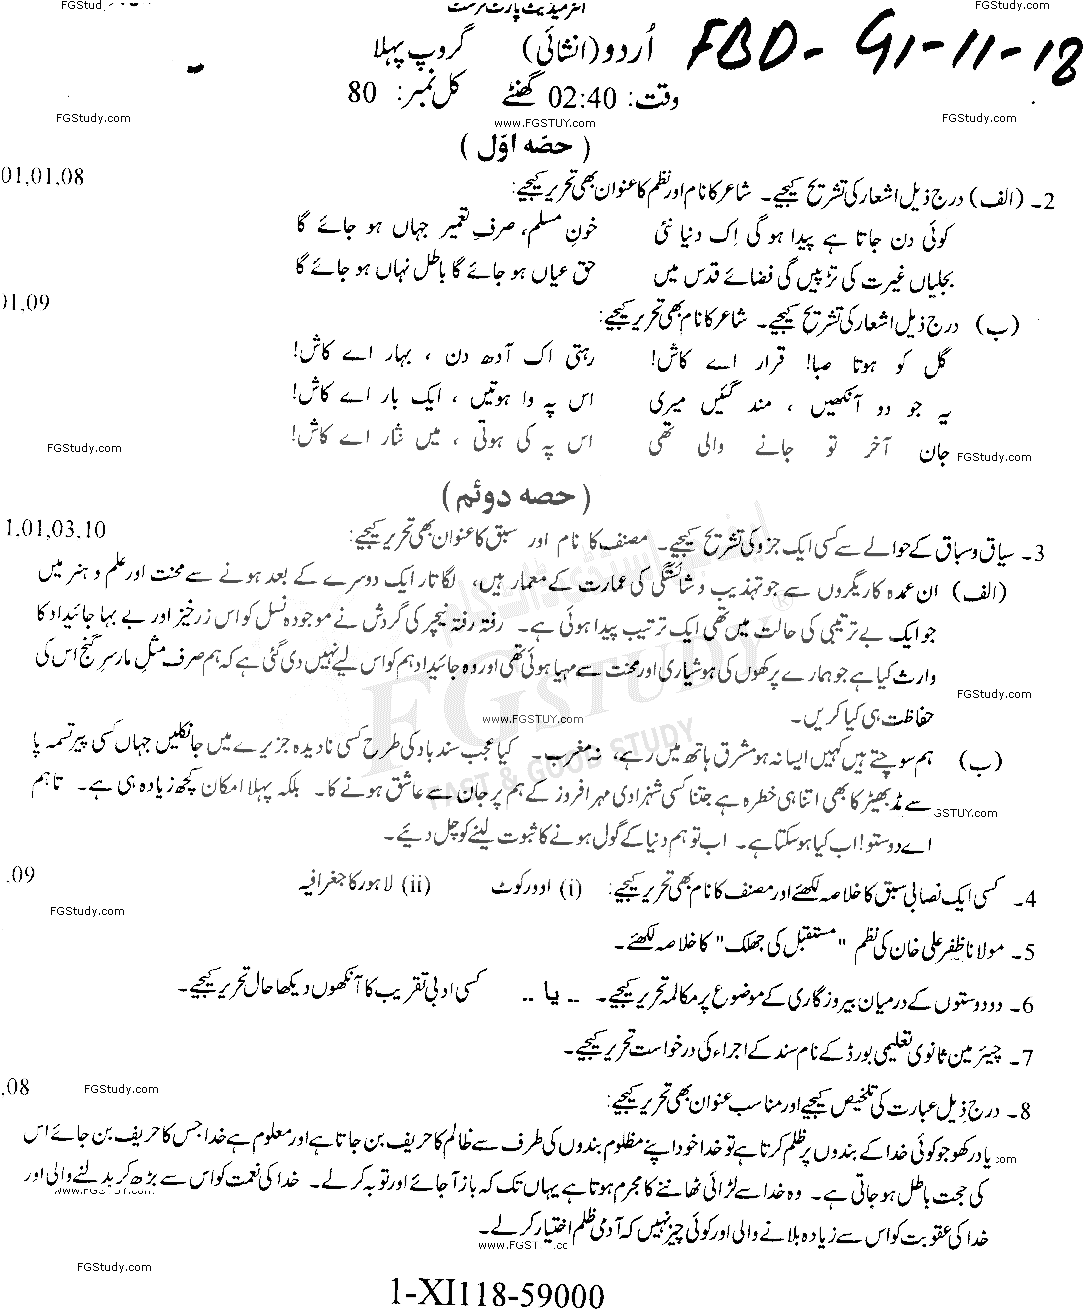 FGStud
انٹرمیڈیٹ پارٹ فرسٹ
FGStudy.com
اُردو (انشائی) گروپ پہلا
FBD - G1-11-18
وقت: 02:40 گھنٹے کل نمبر: 80
FGStudy.com
www.FGSTUY.com
FGStudy.com
(حصّہ اوّل)
2۔ (الف) درج ذیل اشعار کی تشریح کیجیے۔ شاعر کا نام اور نظم کا عنوان بھی تحریر کیجیے: 01,01,08
کوئی دن جاتا ہے پیدا ہو گی اِک دنیا نئی خونِ مسلم، صرفِ تعمیرِ جہاں ہو جائے گا
بجلیاں غیرت کی تڑپیں گی فضائے قدس میں حق عیاں ہو جائے گا باطل نہاں ہو جائے گا
(ب) درج ذیل اشعار کی تشریح کیجیے۔ شاعر کا نام بھی تحریر کیجیے: 01,09
گل کو ہوتا صبا! قرار اے کاش! رہتی اک آدھ دن ، بہار اے کاش!
یہ جو دو آنکھیں ، مند گئیں میری اس پہ وا ہوتیں ، ایک بار اے کاش!
جان آخر تو جانے والی تھی اس پہ کی ہوتی ، میں نثار اے کاش!
FGStudy.com
FGStudy.com
(حصہ دوئم)
3۔ سیاق و سباق کے حوالے سے کسی ایک جزو کی تشریح کیجیے۔ مصنف کا نام اور سبق کا عنوان بھی تحریر کیجیے: 1,01,03,10
(الف) ان عمدہ کاریگروں سے جو تہذیب و شائستگی کی عمارت کے معمار ہیں، لگاتار ایک دوسرے کے بعد ہونے سے محنت اور علم و ہنر میں
جو ایک بے ترتیبی کی حالت میں تھی ایک ترتیب پیدا ہوئی ہے۔ رفتہ رفتہ نیچر کی گردش نے موجودہ نسل کو اس زرخیز اور بے بہا جائیداد کا
وارث کیا ہے جو ہمارے پرکھوں کی ہوشیاری اور محنت سے مہیا ہوئی تھی اور وہ جائیداد ہم کو اس لیے نہیں دی گئی ہے کہ ہم صرف مثلِ مارِ سرِ گنج اس کی
FGStudy.com
حفاظت ہی کیا کریں۔
www.FGSTUY.com
FGSTUDY
FAST & GOOD STUDY
(ب) ہم سوچتے ہیں کہیں ایسا نہ ہو مشرق ہاتھ میں رہے، نہ مغرب۔ کیا عجب سند باد کی طرح کسی نادیدہ جزیرے میں جا نکلیں جہاں کسی پیر تسمہ پا
سے مڈ بھیڑ کا بھی اتنا ہی خطرہ ہے جتنا کسی شہزادی مہر افروز کے ہم پر جان سے عاشق ہونے کا۔ بلکہ پہلا امکان کچھ زیادہ ہی ہے۔ تاہم
GSTUY.com
اے دوستو! اب کیا ہو سکتا ہے۔ اب تو ہم دنیا کے گول ہونے کا ثبوت لینے کو چل دیے۔
4۔ کسی ایک نصابی سبق کا خلاصہ لکھئے اور مصنف کا نام بھی تحریر کیجیے: (i) اوور کوٹ (ii) لاہور کا جغرافیہ .09
FGStudy.com
5۔ مولانا ظفر علی خان کی نظم "مستقبل کی جھلک" کا خلاصہ لکھئے۔
6۔ دو دوستوں کے درمیان بیروزگاری کے موضوع پر مکالمہ تحریر کیجیے۔ -- یا -- کسی ادبی تقریب کا آنکھوں دیکھا حال تحریر کیجیے۔
7۔ چیئر مین ثانوی تعلیمی بورڈ کے نام سند کے اجراء کی درخواست تحریر کیجیے۔
FGStudy.com
8۔ درج ذیل عبارت کی تلخیص کیجیے اور مناسب عنوان بھی تحریر کیجیے: .08
یاد رکھو جو کوئی خدا کے بندوں پر ظلم کرتا ہے تو خدا خود اپنے مظلوم بندوں کی طرف سے ظالم کا حریف بن جاتا ہے اور معلوم ہے خدا جس کا حریف بن جائے اس
com
کی حجت باطل ہو جاتی ہے۔ وہ خدا سے لڑائی ٹھاننے کا مجرم ہوتا ہے یہاں تک کہ باز آ جائے اور توبہ کر لے۔ خدا کی نعمت کو اس سے بڑھ کر بدلنے والی اور
خدا کی عقوبت کو اس سے زیادہ بلانے والی اور کوئی چیز نہیں کہ آدمی ظلم اختیار کر لے۔
FGStudy.com
1-XI118-59000